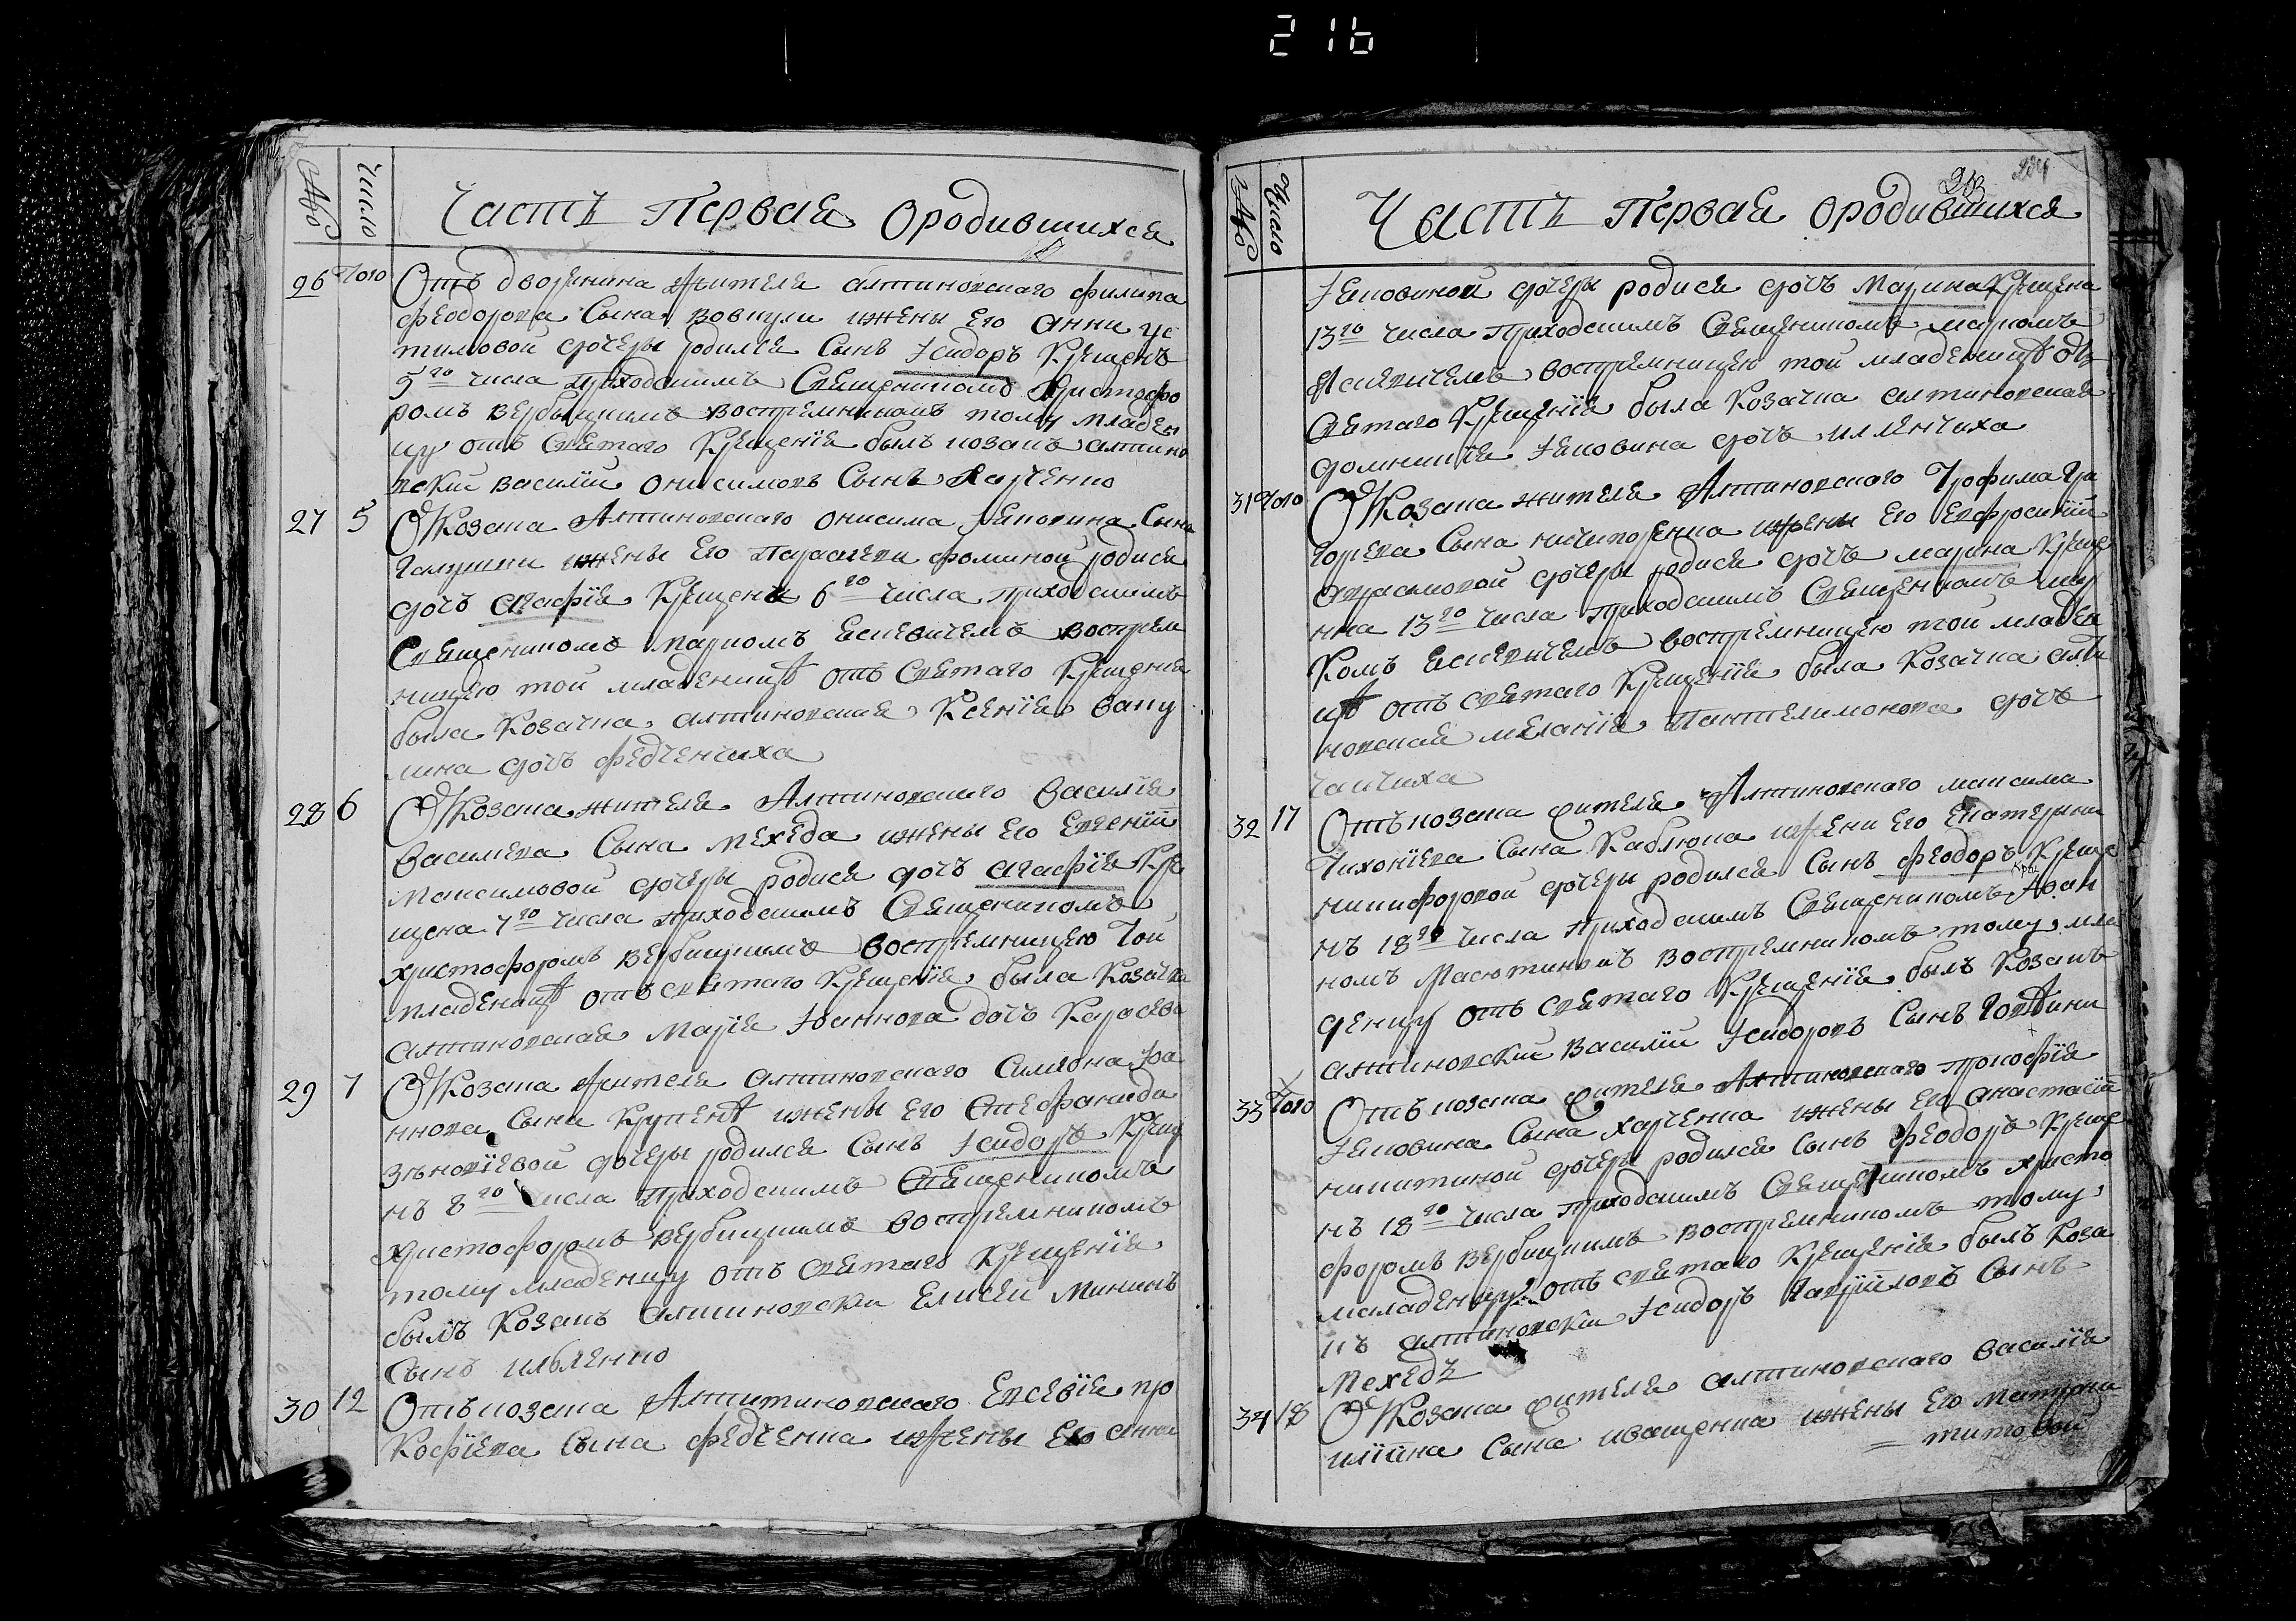 216
№
Число
Часть Первая Ородившихся
26 Того Отъ дворянина жителя алтиновского филипа
феодорова Сына вовкули ижены Его Анни ус
тимовой дочеры родился Сынъ Ісидоръ Крещенъ
5го числа приходскимъ Священикомъ Христофо
ромъ вербицкимъ воспремникомъ тому младен
цу отъ Святаго Крещенія былъ козакъ алтинов
ский василий онисимовъ Сынъ Харченко
27 5 ОтКозака Алтиновского онисима Іаковина Сына
Галушки ижены Его Параскеви фоминой родися
дочь агафія Крещена 6го числа приходскимъ
Священикомъ маркомъ Есиевичемъ воспрем
ницею той младеницѣ отъ Святаго Крещенія
была Козачка алтиновская Ксенія ваку
лина дочъ федченчиха
28 6 ОтКозака жителя Алтиновского василія
василиева Сына мехеда ижены Его Евгеніи
максимовой дочеры родися дочъ агафія Кре
щена 7го числа приходскимъ Священикомъ
христофоромъ вербицкимъ воспремницею Той
младеницѣ отъ святаго Крещенія была Козачка
алтиновская марія Іоаннова дочъ Карасева
29 7 ОтКозака жителя алтиновского Симеона Іоа
ннова Сына Крупенѣ ижены Его Стефаниди
Зѣновіевой дочеры родился Сынъ Ісидоръ Крещ
нъ 8го Числа приходскимъ Священикомъ
христофоромъ вербицкимъ воспремникомъ
тому младенцу отъ святаго Крещенія
былъ Козакъ алтиновски Елисей мининъ
Сынъ илѣенко
30 12 Отъ козака Алтитиновского Евсевія про
Кофіева Сына федченка ижены Его анни
234
№
Число
Часть Первая ородившихся
Іаковиной дочеры родися дочъ Марина Крещена
13го числа приходскимъ Священикомъ маркомъ
Есиевичемъ воспремницею той младеницѣ отъ
Святаго Крещенія была Козачка алтиновская
домникія Іаковина дочъ илленчиха
31 Того ОтКозака жителя Алтиновского Трофима Гри
горіева Сына ничипоренка ижены Его Евфросиніи
герасимовой дочеры родися дочъ марина Креще
нна 13го числа приходскимъ Священикомъ мар
Комъ Есиевичемъ воспремницею той младен
цѣ отъ святаго Крещенія была Козачка алти
новская меланія Пантелимонова дочъ
чайчиха
32 17 Отъ козака жителя Алтиновского максима
Тихоніева Сына Каблюка ижени Его Екатерини
никифоровой дочери родился Сынъ феодоръ Креще
нъ 18го числа приходскимъ Священикомъ Афан
номъ Масютинимъ воспремникомъ тому мла
денцу отъ святаго Крещенія былъ Козакъ
алтиновский василий Ісидоровъ Сынъ
33 Того Отъ козака жителя Алтиновского прокофія
Іаковина Сына харченка ижены Его анастасіи
никитиной дочеры родился Сынъ феодоръ Креще
нъ 18го числа приходскимъ Священикомъ христо
форомъ вербицкимъ воспремникомъ тому
маладенцу отъ святаго Крещенія былъ Коза
къ алтиновскій Ісидоръ Гавріиловъ Сынъ
Мехедъ
34 18 ОтКозака жителя алтиновского василія
иліина Сына иващенка ижены Его матрони
титовой